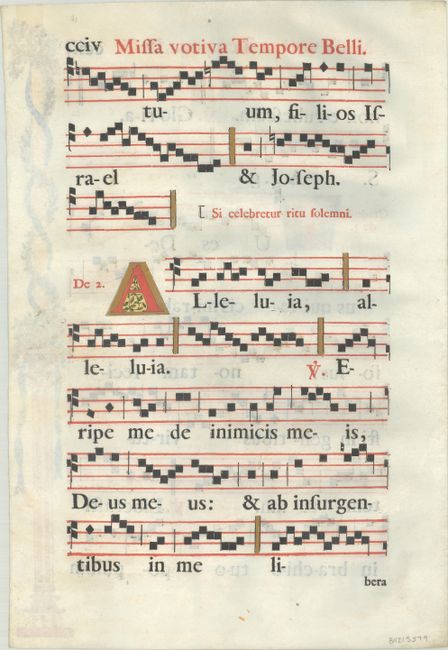 cciv Miſſa votiva Tempore Belli.
tu- um, fi- li- os Iſ-
ra- el & Jo- ſeph.
[ Si celebretur ritu ſolemni.
De 2. A L- le- lu- ia, al-
le- lu- ia. ℣. E-
ripe me de inimicis me- is,
De- us me- us: & ab inſurgen-
tibus in me li-
bera